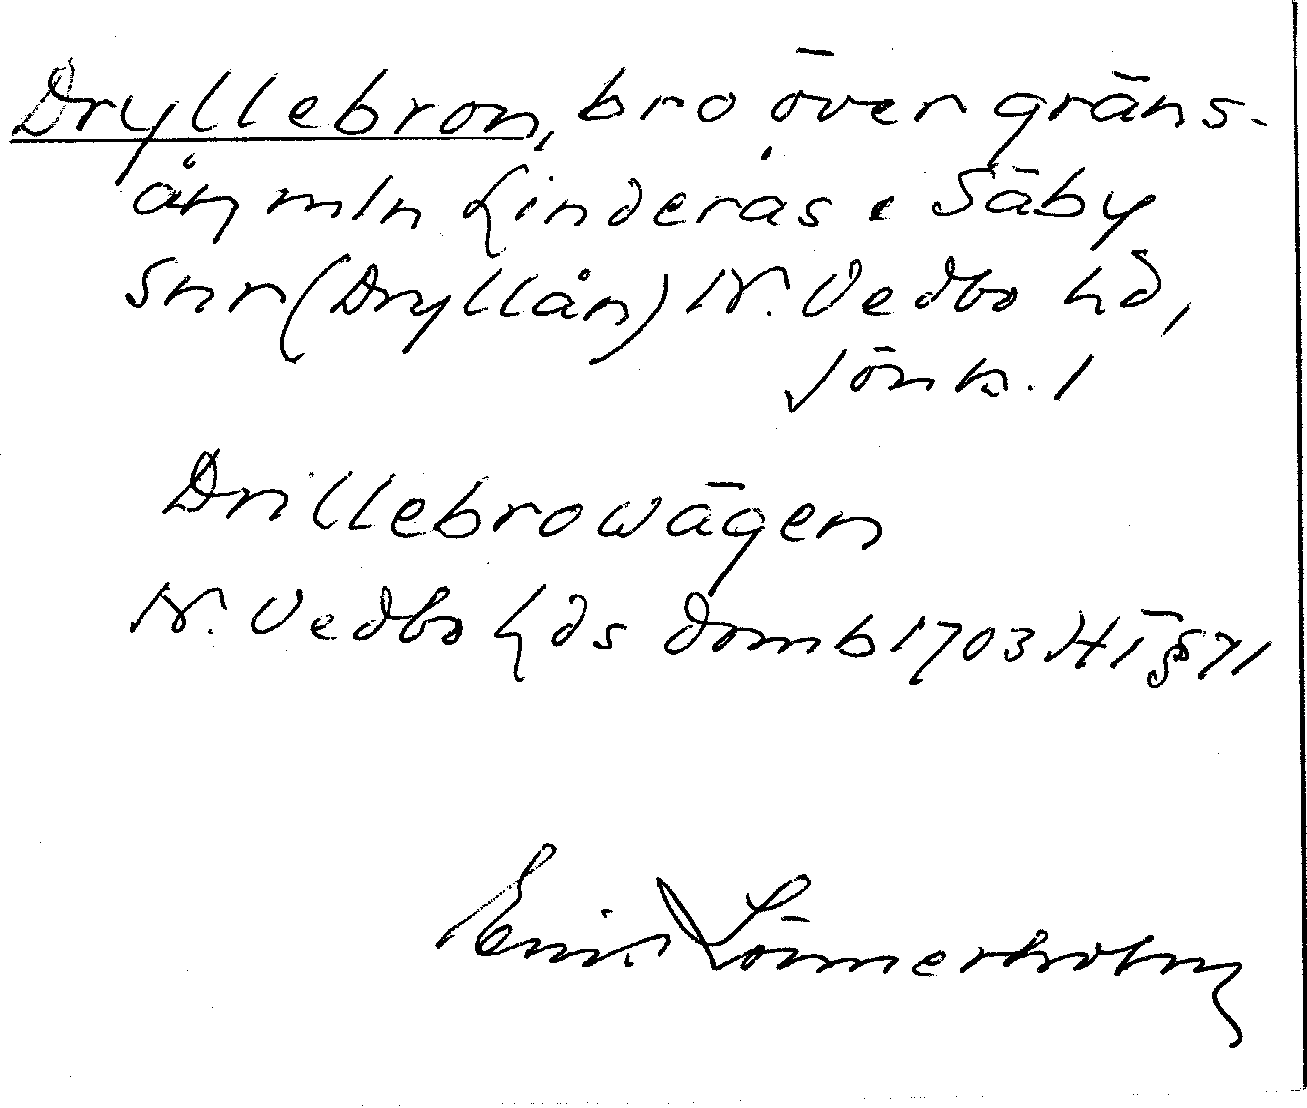 Dryllebron, bro över gräns-
ån mln Linderås o Säby
snr (Dryllån) N. Vedbo hd,
Jönk. l
Drillebrowägen
N. Vedbo hds domb 1703 HT § 71
Lönnerholm